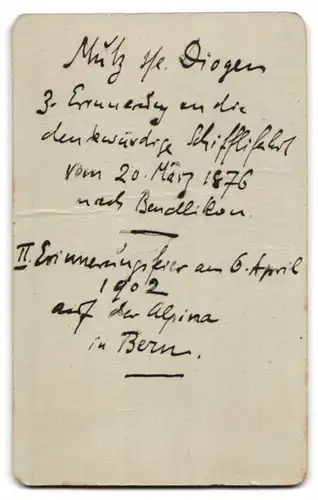 Mutz s/e. Diogen
z. Erinnerung an die
denkwürdige Schifflifahrt
vom 20. März 1876
nach Bendlikon.
II. Erinnerungsfeier am 6. April
1902
auf der Alpina
in Bern.